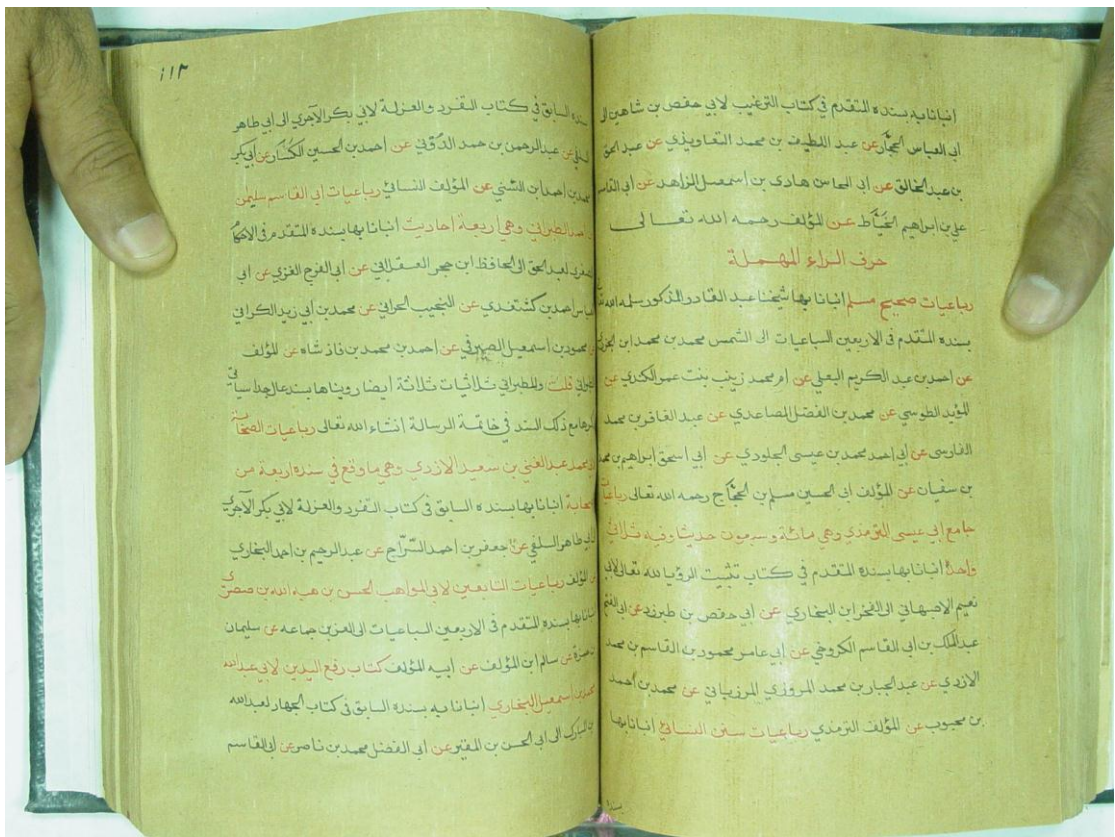 انبانا به بسنده المتقدم في كتاب الترغيب لابي حفص بن شاهين الى
ابي العباس الحجار عن عبد اللطيف بن محمد التعاويذي عن عبد الحق
بن عبد الخالق عن ابي المحاسن هادي بن اسمعيل الزاهد عن ابي القاسم
علي بن ابراهيم الخياط عن المؤلف رحمه الله تعالى
حرف الراء المهملة
رباعيات صحيح مسلم انبانا بها شيخنا عبد القادر المذكور سلمه الله
بسنده المتقدم في الاربعين السباعيات الى الشمس محمد بن محمد ابن الجزري
عن احمد بن عبد الكريم البعلي عن ام محمد زينب بنت عمر الكندي عن
المؤيد الطوسي عن محمد بن الفضل الصاعدي عن عبد الغافر بن محمد
الفارسي عن ابي احمد محمد بن عيسى الجلودي عن ابي اسحق ابراهيم بن محمد
بن سفيان عن المؤلف ابي الحسين مسلم بن الحجاج رحمه الله تعالى رباعيات
جامع ابي عيسى الترمذي وهي مائة وسبعون حديثا وفيه ثلاثي
واحد انبانا بها بسنده المتقدم في كتاب تثبيت الرؤيا لله تعالى لابي
نعيم الاصبهاني الى الفخر ابن البخاري عن ابي حفص بن طبرزد عن ابي الفتح
عبد الملك بن ابي القاسم الكروخي عن ابي عامر محمود بن القاسم بن محمد
الازدي عن عبد الجبار بن محمد المروزي المرزباني عن محمد بن احمد
بن محبوب عن المؤلف الترمذي رباعيات سنن النسائي انبانا بها
١١٣
بسنده السابق في كتاب التفرد والعزلة لابي بكر الآجري الى ابي طاهر
السلفي عن عبد الرحمن بن حمد الدوني عن احمد بن الحسين الكسار عن ابي بكر
محمد بن احمد ابن السني عن المؤلف النسائي رباعيات ابي القاسم سليمن
بن احمد الطبراني وهي اربعة احاديث انبانا بها بسنده المتقدم في الاحكام
الصغرى لعبد الحق الى الحافظ ابن حجر العسقلاني عن ابي الفرج الغزي عن ابي
العباس احمد بن كشتغدي عن النجيب الحراني عن محمد بن ابي زيد الكراني
عن محمود بن اسمعيل الصيرفي عن احمد بن محمد بن فاذشاه عن المؤلف
الطبراني قلت وللطبراني ثلاثيات ثلاثة ايضا رويناها بسند عال جدا
ذكرها مع ذلك السند في خاتمة الرسالة انشاء الله تعالى رباعيات الصحابة
لابي محمد عبد الغني بن سعيد الازدي وهي ما وقع في سنده اربعة من
الصحابة انبانا بها بسنده السابق في كتاب التفرد والعزلة لابي بكر الآجري
الى ابي طاهر السلفي عن جعفر بن احمد السراج عن عبد الرحيم بن احمد البخاري
عن المؤلف رباعيات التابعين لابي المواهب الحسن بن هبة الله بن صصرى
انبانا بها بسنده المتقدم في الاربعين السباعيات الى العز بن جماعه عن سليمان
بن حمزة عن سالم ابن المؤلف عن ابيه المؤلف كتاب رفع اليدين لابي عبد الله
محمد بن اسمعيل البخاري انبانا به بسنده السابق في كتاب الجهاد لعبد الله
بن المبارك الى ابي الحسن بن المقير عن ابي الفضل محمد بن ناصر عن ابي القاسم